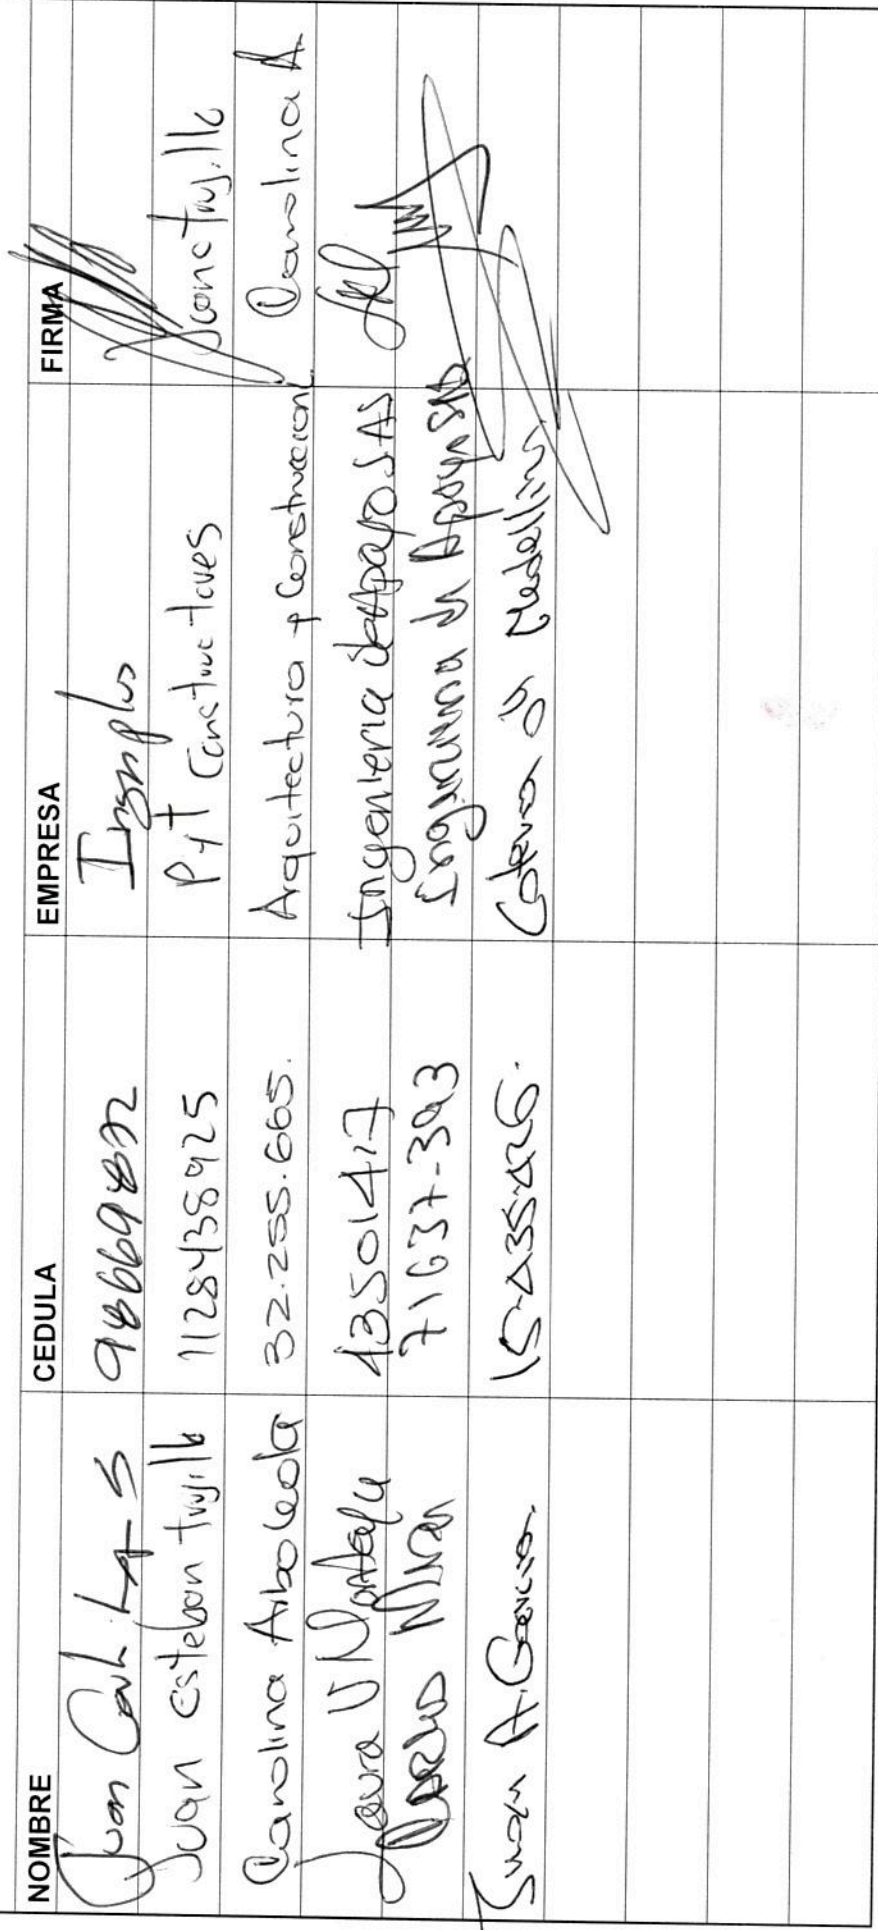 NOMBRE CEDULA EMPRESA FIRMA
Juan 98669872 Ingenplus
Juan Esteban Trujillo 1128438925 P y T Constructores Juanetrujillo
Carolina Arboleda 32.255.665. Arquitectura y Construccion Carolina A
Laura V Montoya 43501417 Ingenieria de Apoyo SAS
71637-393 Ingenieria de Apoyo SAS
Juan A. Garcia. 15435426. Medellin